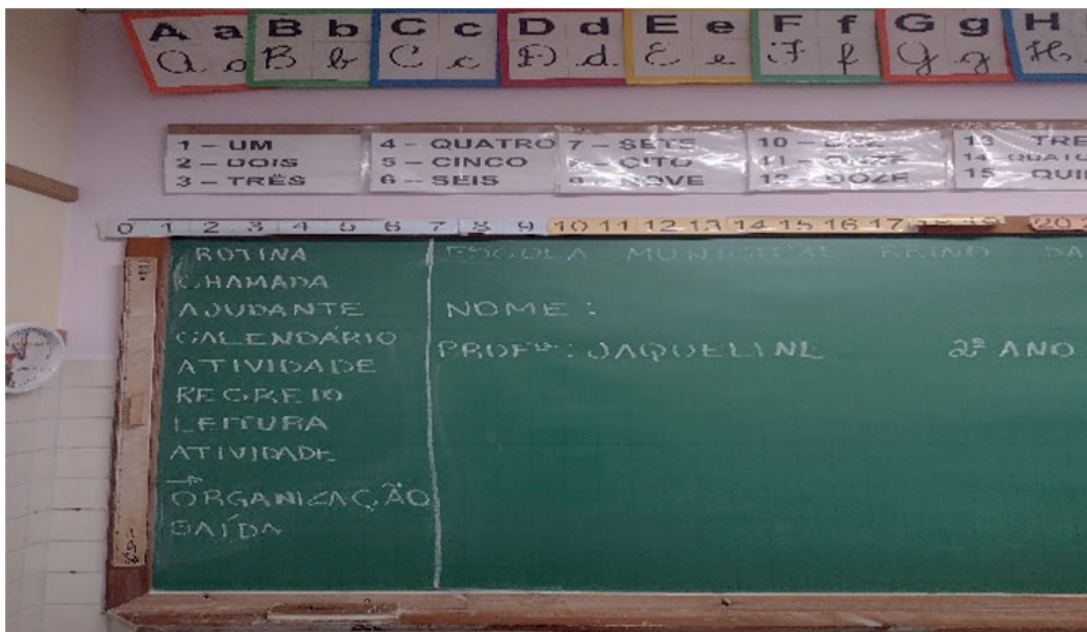 A a B b C c D d E e F f G g H
A a B b C c D d E e F f G g H
1 – UM
2 – DOIS
3 – TRÊS
4 – QUATRO
5 – CINCO
6 – SEIS
7 – SETE
8 – OITO
9 – NOVE
10 – DEZ
11 – ONZE
12 – DOZE
13 TRE
14 QUATO
15 QUI
0 1 2 3 4 5 6 7 8 9 10 11 12 13 14 15 16 17 18 19 20
ROTINA
CHAMADA
AJUDANTE
CALENDÁRIO
ATIVIDADE
RECREIO
LEITURA
ATIVIDADE
→
ORGANIZAÇÃO
SAÍDA
ESCOLA MUNICIPAL REINO DA
NOME :
PROFª : JAQUELINE 2º ANO